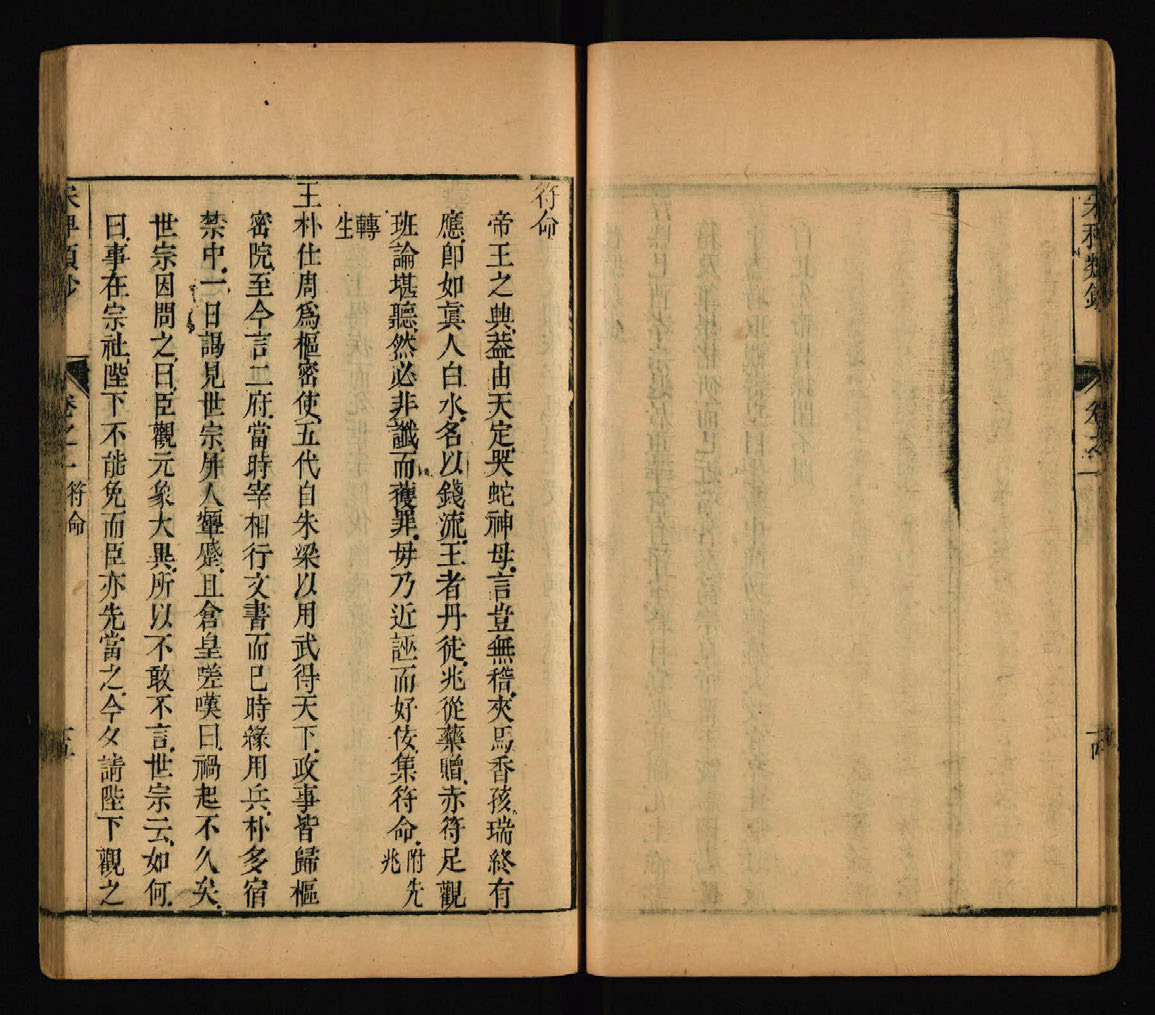 宋稗類鈔
卷之一
十四
符命
帝王之興.葢由天定.哭蛇神母.言豈無稽.夾馬香孩.瑞終有
應.卽如眞人白水.名以錢流.王者丹徒.兆從藥贈.赤符足觀
班論堪聽.然必非讖而獲罪.毋乃近誣而好佞.集符命.附先兆
轉生
王朴仕周爲樞密使.五代自朱梁以用武得天下.政事皆歸樞
密院.至今言二府.當時宰相行文書而已.時緣用兵.朴多宿
禁中.一日謁見世宗.屏人顰蹙.且倉皇嗟嘆曰.禍起不久矣.
世宗因問之.曰.臣觀元象大異.所以不敢不言.世宗云.如何.
曰.事在宗社.陛下不能免.而臣亦先當之.今夕請陛下觀之
宋稗類鈔
卷之一
符命
十五